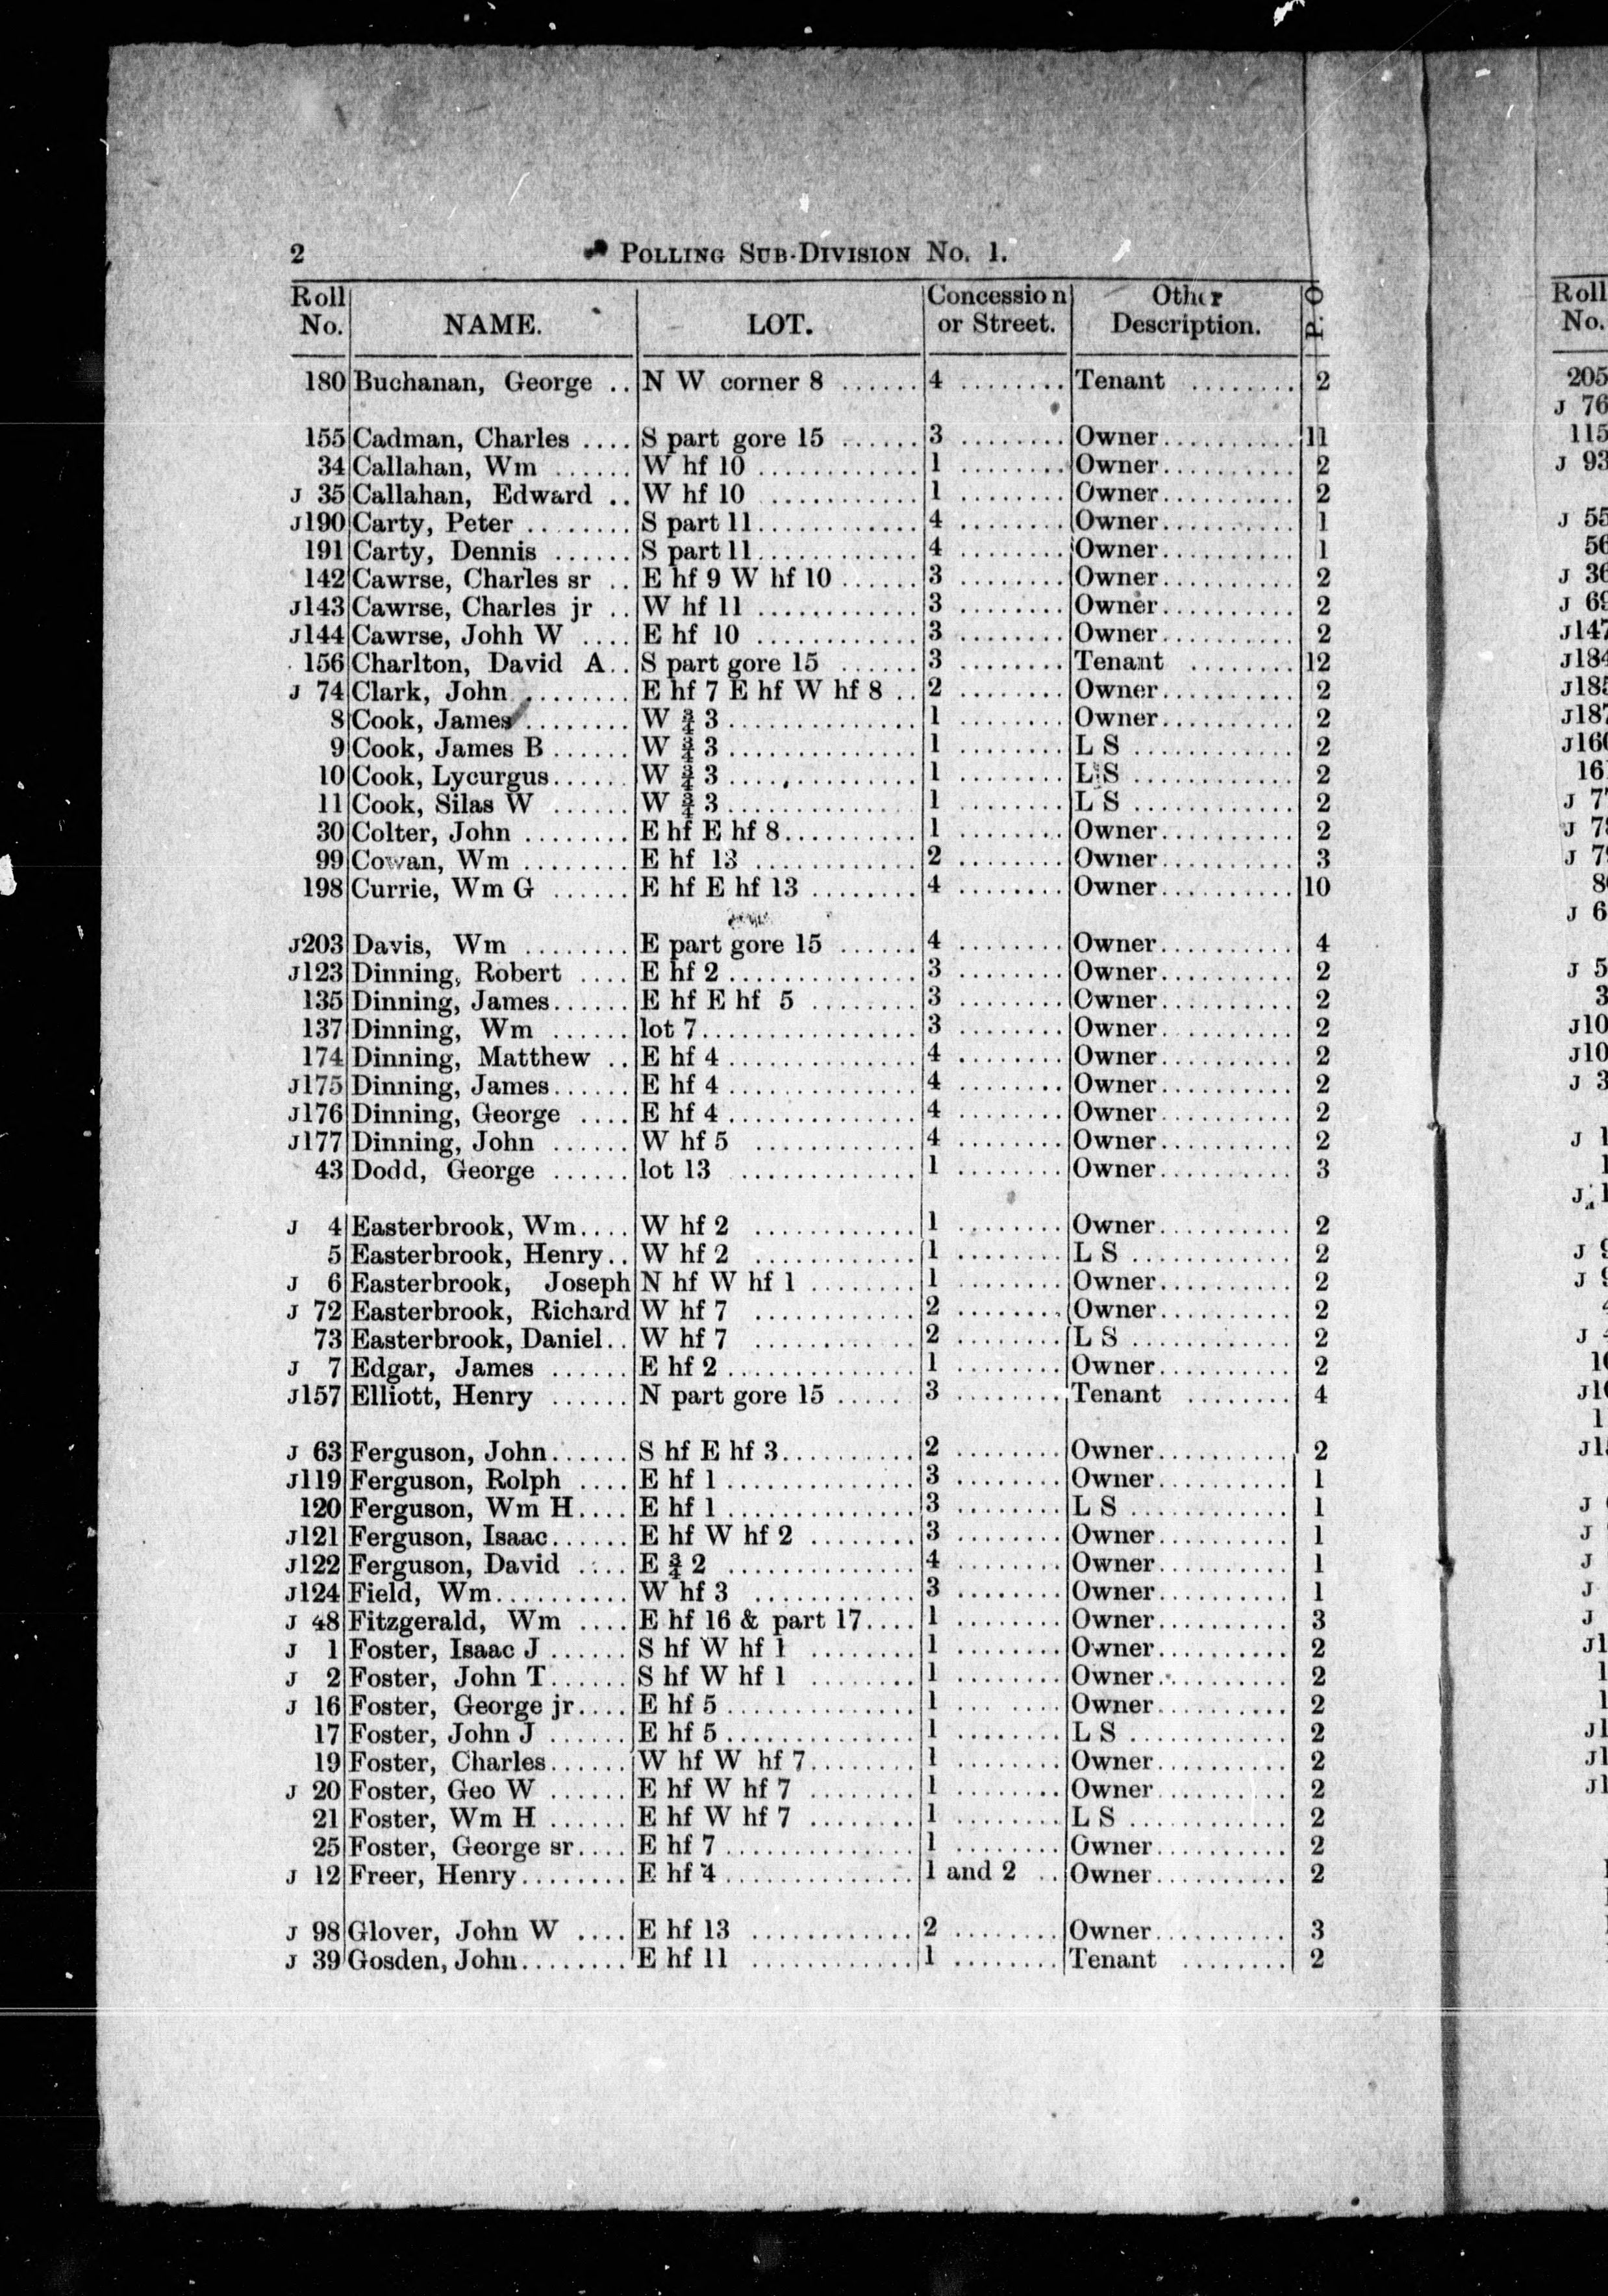 2 POLLING SUB-DIVISION No. 1.
Roll No. NAME. LOT. Concession or Street. Other Description. P. O
180 Buchanan, George .. N W corner 8 ...... 4 ........ Tenant ........ 2
155 Cadman, Charles .... S part gore 15 ...... 3 ........ Owner.......... 11
34 Callahan, Wm ...... W hf 10 ............ 1 ........ Owner.......... 2
J 35 Callahan, Edward .. W hf 10 ............ 1 ........ Owner.......... 2
J190 Carty, Peter ........ S part 11............ 4 ........ Owner.......... 1
191 Carty, Dennis ...... S part 11............ 4 ........ Owner.......... 1
142 Cawrse, Charles sr .. E hf 9 W hf 10 ...... 3 ........ Owner.......... 2
J143 Cawrse, Charles jr .. W hf 11 ............ 3 ........ Owner.......... 2
J144 Cawrse, Johh W .... E hf 10 ............ 3 ........ Owner.......... 2
156 Charlton, David A.. S part gore 15 ...... 3 ........ Tenant ........ 12
J 74 Clark, John ........ E hf 7 E hf W hf 8 .. 2 ........ Owner.......... 2
8 Cook, James ........ W ¾ 3.............. 1 ........ Owner.......... 2
9 Cook, James B ...... W ¾ 3.............. 1 ........ L S ............ 2
10 Cook, Lycurgus...... W ¾ 3.............. 1 ........ L S ............ 2
11 Cook, Silas W ...... W ¾ 3.............. 1 ........ L S ............ 2
30 Colter, John ........ E hf E hf 8.......... 1 ........ Owner.......... 2
99 Cowan, Wm ........ E hf 13 ............ 2 ........ Owner.......... 3
198 Currie, Wm G ...... E hf E hf 13 ........ 4 ........ Owner.......... 10
J203 Davis, Wm ........ E part gore 15 ...... 4 ........ Owner.......... 4
J123 Dinning, Robert .... E hf 2.............. 3 ........ Owner.......... 2
135 Dinning, James...... E hf E hf 5 ........ 3 ........ Owner.......... 2
137 Dinning, Wm ...... lot 7................ 3 ........ Owner.......... 2
174 Dinning, Matthew .. E hf 4.............. 4 ........ Owner.......... 2
J175 Dinning, James...... E hf 4.............. 4 ........ Owner.......... 2
J176 Dinning, George .... E hf 4.............. 4 ........ Owner.......... 2
J177 Dinning, John ...... W hf 5 ............ 4 ........ Owner.......... 2
43 Dodd, George ...... lot 13 ............. 1 ........ Owner.......... 3
J 4 Easterbrook, Wm.... W hf 2 ............ 1 ........ Owner.......... 2
5 Easterbrook, Henry.. W hf 2 ............ 1 ........ L S ............ 2
J 6 Easterbrook, Joseph N hf W hf 1 ........ 1 ........ Owner.......... 2
J 72 Easterbrook, Richard W hf 7 ............ 2 ........ Owner.......... 2
73 Easterbrook, Daniel.. W hf 7 ............ 2 ........ L S ............ 2
J 7 Edgar, James ...... E hf 2.............. 1 ........ Owner.......... 2
J157 Elliott, Henry ...... N part gore 15 ...... 3 ........ Tenant ........ 4
J 63 Ferguson, John...... S hf E hf 3.......... 2 ........ Owner.......... 2
J119 Ferguson, Rolph .... E hf 1.............. 3 ........ Owner.......... 1
120 Ferguson, Wm H.... E hf 1.............. 3 ........ L S ............ 1
J121 Ferguson, Isaac...... E hf W hf 2 ........ 3 ........ Owner.......... 1
J122 Ferguson, David .... E ¾ 2 .............. 4 ........ Owner.......... 1
J124 Field, Wm.......... W hf 3 ............ 3 ........ Owner.......... 1
J 48 Fitzgerald, Wm .... E hf 16 & part 17.... 1 ........ Owner.......... 3
J 1 Foster, Isaac J ...... S hf W hf 1 ........ 1 ........ Owner.......... 2
J 2 Foster, John T...... S hf W hf 1 ........ 1 ........ Owner.......... 2
J 16 Foster, George jr.... E hf 5.............. 1 ........ Owner.......... 2
17 Foster, John J ...... E hf 5.............. 1 ........ L S ............ 2
19 Foster, Charles...... W hf W hf 7........ 1 ........ Owner.......... 2
J 20 Foster, Geo W ...... E hf W hf 7 ........ 1 ........ Owner.......... 2
21 Foster, Wm H ...... E hf W hf 7 ........ 1 ........ L S ............ 2
25 Foster, George sr.... E hf 7.............. 1 ........ Owner.......... 2
J 12 Freer, Henry........ E hf 4.............. 1 and 2 .. Owner.......... 2
J 98 Glover, John W .... E hf 13 ............ 2 ........ Owner.......... 3
J 39 Gosden, John........ E hf 11 ............ 1 ........ Tenant ........ 2
Roll
No.
205
J 76
115
J 93
J 55
56
J 36
J 69